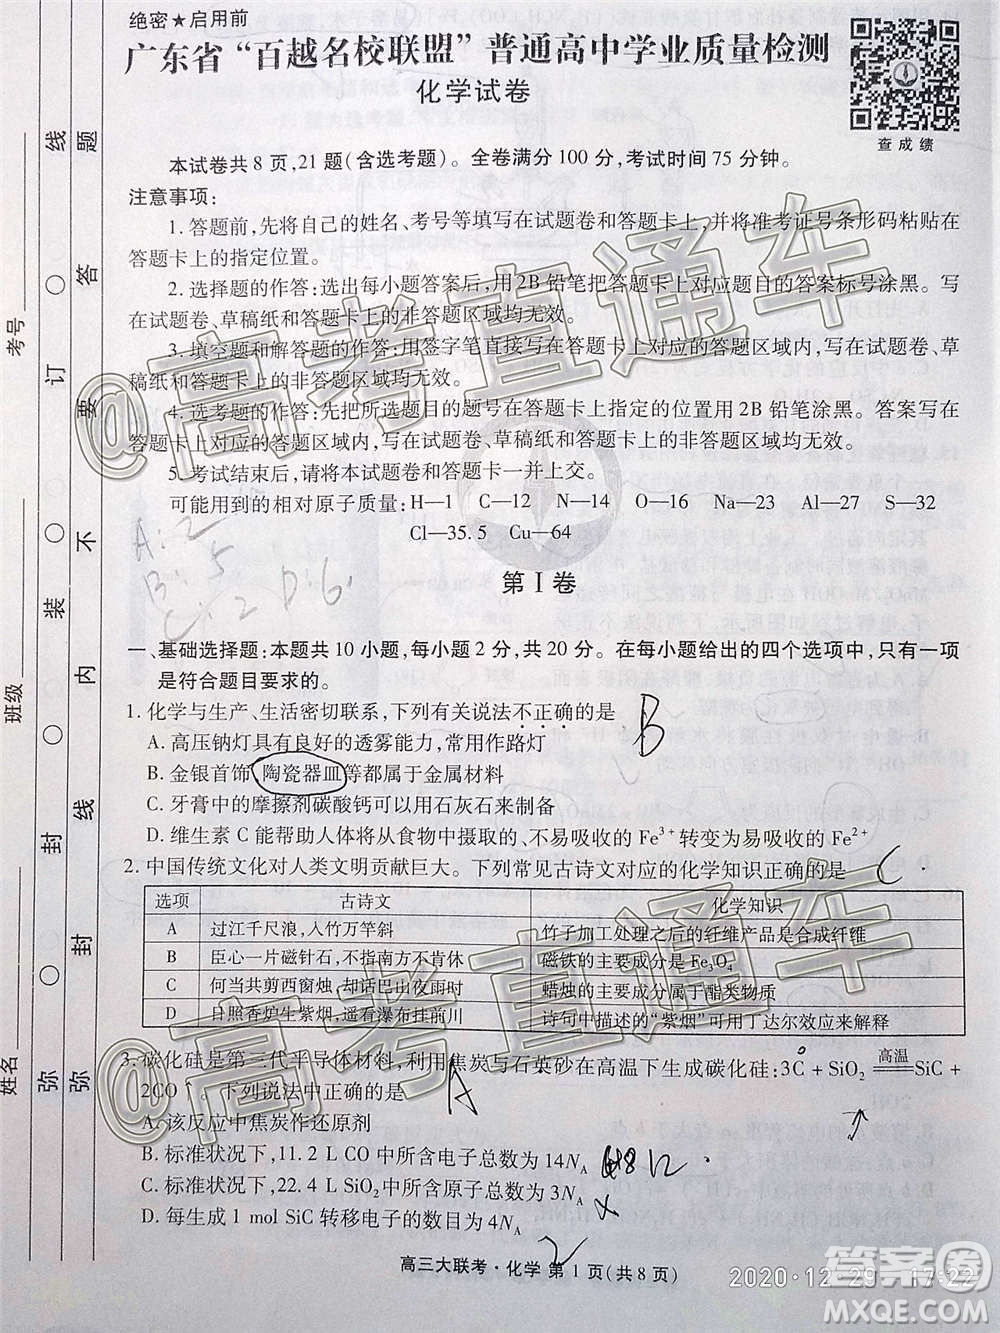 绝密★启用前
广东省“百越名校联盟”普通高中学业质量检测
化学试卷
查成绩
本试卷共8页,21题(含选考题)。全卷满分100分,考试时间75分钟。
注意事项:
1. 答题前,先将自己的姓名、考号等填写在试题卷和答题卡上,并将准考证号条形码粘贴在
答题卡上的指定位置。
2. 选择题的作答:选出每小题答案后,用2B铅笔把答题卡上对应题目的答案标号涂黑。写
在试题卷、草稿纸和答题卡上的非答题区域均无效。
3. 填空题和解答题的作答:用签字笔直接写在答题卡上对应的答题区域内,写在试题卷、草
稿纸和答题卡上的非答题区域均无效。
4. 选考题的作答:先把所选题目的题号在答题卡上指定的位置用2B铅笔涂黑。答案写在
答题卡上对应的答题区域内,写在试题卷、草稿纸和答题卡上的非答题区域均无效。
5. 考试结束后,请将本试题卷和答题卡一并上交。
可能用到的相对原子质量: H—1 C—12 N—14 O—16 Na—23 Al—27 S—32
Cl—35.5 Cu—64
A: 2
B: 5
C: 2 D: 6
第Ⅰ卷
一、基础选择题:本题共10小题,每小题2分,共20分。在每小题给出的四个选项中,只有一项
是符合题目要求的。
1. 化学与生产、生活密切联系,下列有关说法不正确的是 B
A. 高压钠灯具有良好的透雾能力,常用作路灯
B. 金银首饰、陶瓷器皿等都属于金属材料
C. 牙膏中的摩擦剂碳酸钙可以用石灰石来制备
D. 维生素C能帮助人体将从食物中摄取的、不易吸收的Fe³⁺转变为易吸收的Fe²⁺
2. 中国传统文化对人类文明贡献巨大。下列常见古诗文对应的化学知识正确的是 C
选项 古诗文 化学知识
A 过江千尺浪,入竹万竿斜 竹子加工处理之后的纤维产品是合成纤维
B 臣心一片磁针石,不指南方不肯休 磁铁的主要成分是Fe₃O₄
C 何当共剪西窗烛,却话巴山夜雨时 蜡烛的主要成分属于酯类物质
D 日照香炉生紫烟,遥看瀑布挂前川 诗句中描述的“紫烟”可用丁达尔效应来解释
3. 碳化硅是第三代半导体材料,利用焦炭与石英砂在高温下生成碳化硅:3C+SiO₂ 高温 SiC+
2CO 。下列说法中正确的是 A
A. 该反应中焦炭作还原剂
B. 标准状况下,11.2 L CO中所含电子总数为14N_A
C. 标准状况下,22.4 L SiO₂中所含原子总数为3N_A
D. 每生成1 mol SiC转移电子的数目为4N_A
高三大联考·化学 第1页(共8页)
2
考号
班级
姓名
弥 封 线 内 不 要 答 题
弥 封 装 订 线
@高考直通车
@高考直通车
2020·12·29 17:22
答案圈
MXQE.COM